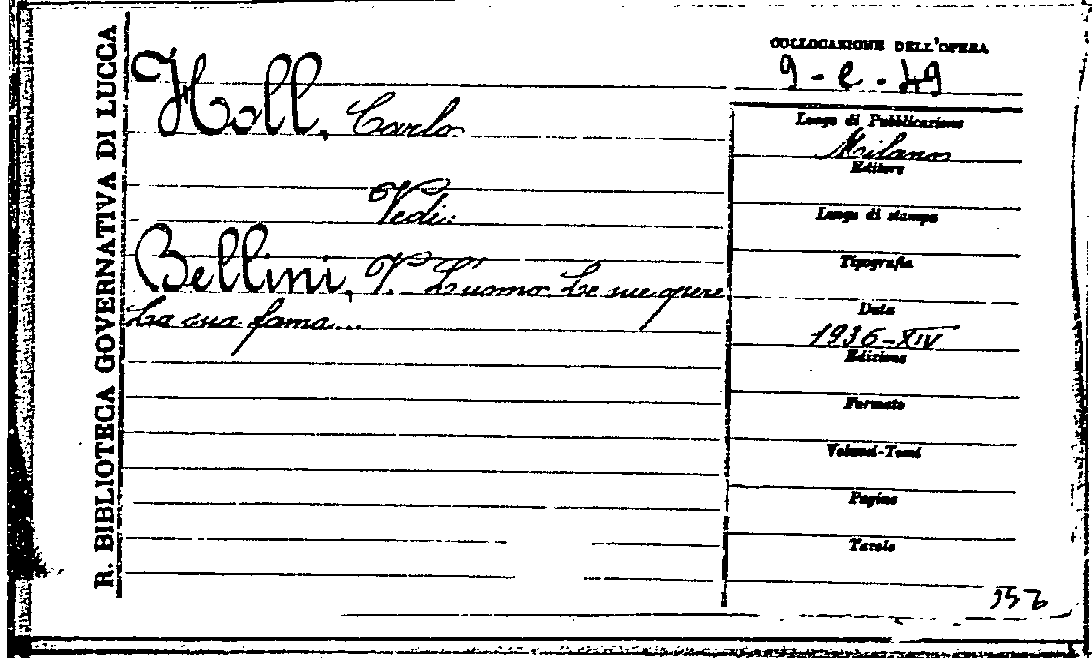 R. BIBLIOTECA GOVERNATIVA DI LUCCA
Holl, Carlo
Vedi:
Bellini, V. L'uomo. Le sue opere
La sua fama...
COLLOCAZIONE DELL'OPERA
9-e-49
Luogo di Pubblicazione
Milano
Editore
Luogo di stampa
Tipografia
Data
1936-XIV
Edizione
Formato
Volumi-Tomi
Pagine
Tavole